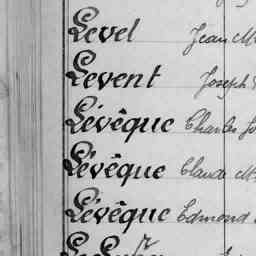 Level Jean M
Levent Joseph
Lévêque Charles Jo
Lévêque Claude M
Lévêque Edmond